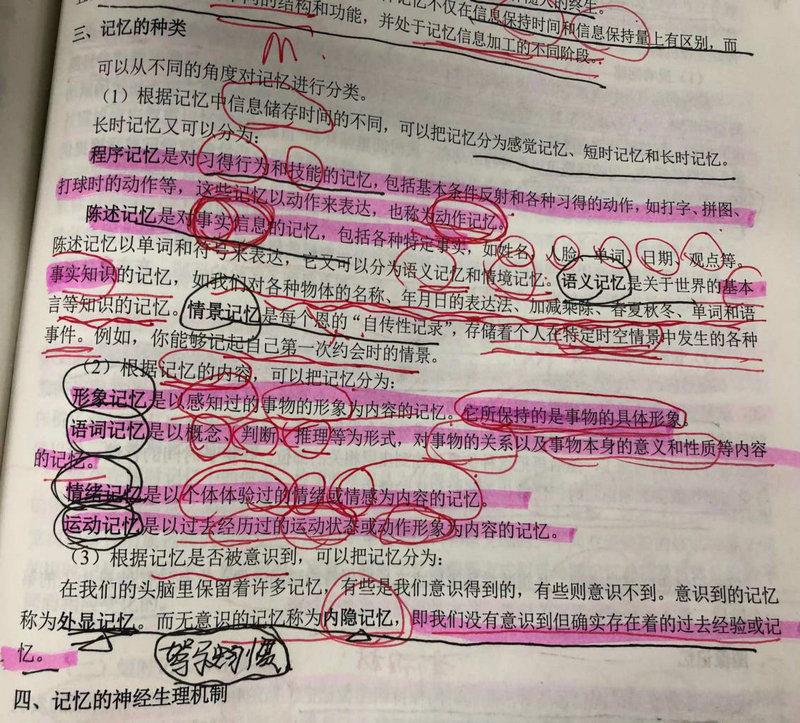 不同的结构和功能，并处于记忆信息加工的不同阶段。
记忆不仅在信息保持时间和信息保持量上有区别，而
三、记忆的种类
可以从不同的角度对记忆进行分类。
（1）根据记忆中信息储存时间的不同，可以把记忆分为感觉记忆、短时记忆和长时记忆。
长时记忆又可以分为：
程序记忆是对习得行为和技能的记忆，包括基本条件反射和各种习得的动作，如打字、拼图、
打球时的动作等，这些记忆以动作来表达，也称为动作记忆。
陈述记忆是对事实信息的记忆，包括各种特定事实，如姓名、人脸、单词、日期、观点等。
陈述记忆以单词和符号来表达，它又可以分为语义记忆和情境记忆。语义记忆是关于世界的基本
事实知识的记忆，如我们对各种物体的名称、年月日的表达法、加减乘除、春夏秋冬、单词和语
言等知识的记忆。情景记忆是每个恩的“自传性记录”，存储着个人在特定时空情景中发生的各种
事件。例如，你能够记起自己第一次约会时的情景。
（2）根据记忆的内容，可以把记忆分为：
形象记忆是以感知过的事物的形象为内容的记忆。它所保持的是事物的具体形象。
语词记忆是以概念、判断、推理等为形式，对事物的关系以及事物本身的意义和性质等内容
的记忆。
情绪记忆是以个体体验过的情绪或情感为内容的记忆。
运动记忆是以过去经历过的运动状态或动作形象为内容的记忆。
（3）根据记忆是否被意识到，可以把记忆分为：
在我们的头脑里保留着许多记忆，有些是我们意识得到的，有些则意识不到。意识到的记忆
称为外显记忆。而无意识的记忆称为内隐记忆，即我们没有意识到但确实存在着的过去经验或记
忆。
四、记忆的神经生理机制